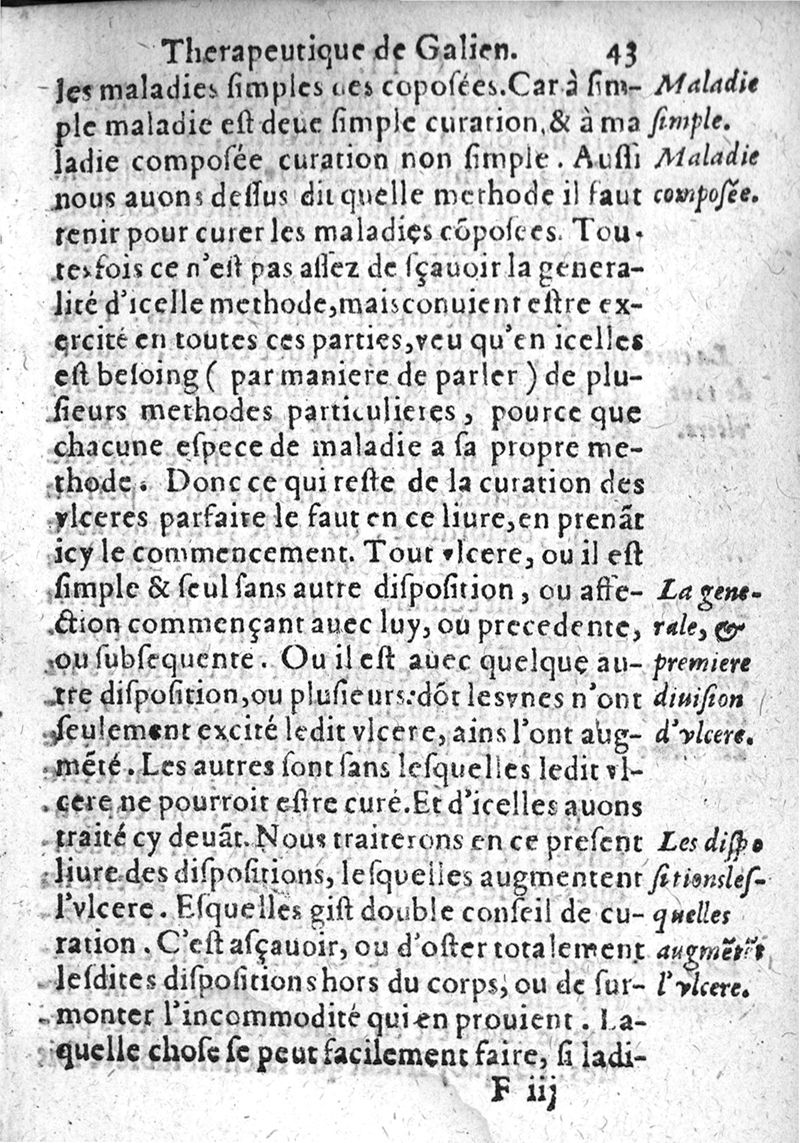 Therapeutique de Galien. 43
les maladies ſimples des cõpoſées. Car à ſim-
ple maladie eſt deue ſimple curation, & à ma
ladie compoſée curation non ſimple. Auſſi
nous auons deſſus dit quelle methode il faut
tenir pour curer les maladies cõpoſees. Tou-
tesfois ce n'eſt pas aſſez de ſçauoir la genera-
lité d'icelle methode, mais conuient eſtre ex-
ercité en toutes ces parties, veu qu'en icelles
eſt beſoing ( par maniere de parler ) de plu-
ſieurs methodes particulieres, pource que
chacune eſpece de maladie a ſa propre me-
thode. Donc ce qui reſte de la curation des
vlceres parfaire le faut en ce liure, en prenãt
icy le commencement. Tout vlcere, ou il eſt
ſimple & ſeul ſans autre diſpoſition, ou affe-
ction commençant auec luy, ou precedente,
ou ſubſequente. Ou il eſt auec quelque au-
tre diſpoſition, ou pluſieurs: dõt les vnes n'ont
ſeulement excité ledit vlcere, ains l'ont aug-
mẽté. Les autres ſont ſans leſquelles ledit vl-
cere ne pourroit eſtre curé. Et d'icelles auons
traité cy deuãt. Nous traiterons en ce preſent
liure des diſpoſitions, leſquelles augmentent
l'vlcere. Eſquelles giſt double conſeil de cu-
ration. C'eſt aſçauoir, ou d'oſter totalement
leſdites diſpoſitions hors du corps, ou de ſur-
monter l'incommodité qui en prouient. La-
quelle choſe ſe peut facilement faire, ſi ladi-
F iij
Maladie
ſimple.
Maladie
compoſée.
La gene-
rale, &
premiere
diuiſion
d'vlcere.
Les diſpo
ſitions leſ-
quelles
augmẽtẽt
l'vlcere.